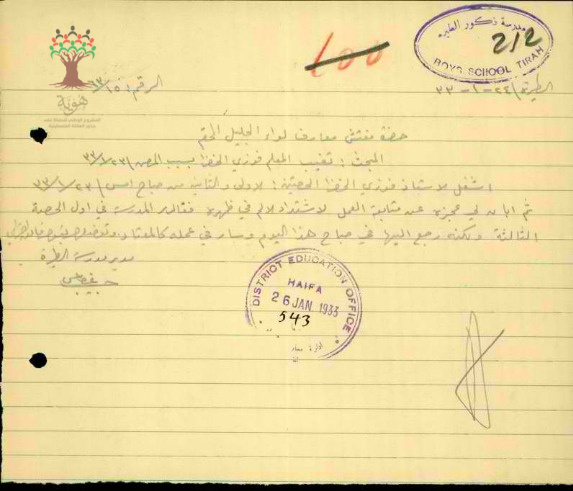 مدرسة ذكور الطيره
2/2
BOYS SCHOOL TIRAH
100
هوية
الرقم: ١٥
الطيرة / ٢٤-١-٣٣
حضرة مفتش معارف لواء الجليل المحترم
المبحث: تغيب المعلم فوزي الخضرا بسبب المرض ٢٣/١/٣٣
اشغل الاستاذ فوزي الخضرا الحصتين: الاولى والثانية من صباح امس ٢٣/١/٣٣
ثم ابان لي عجزه عن متابعة العمل لاشتداد الالم في ظهره فغادر المدرسة في اول الحصة
الثالثة ولكنه رجع اليها في صباح هذا اليوم وسار في عمله كالمعتاد
مدير مدرسة الطيرة
DISTRICT EDUCATION OFFICE
HAIFA
26 JAN 1933
543